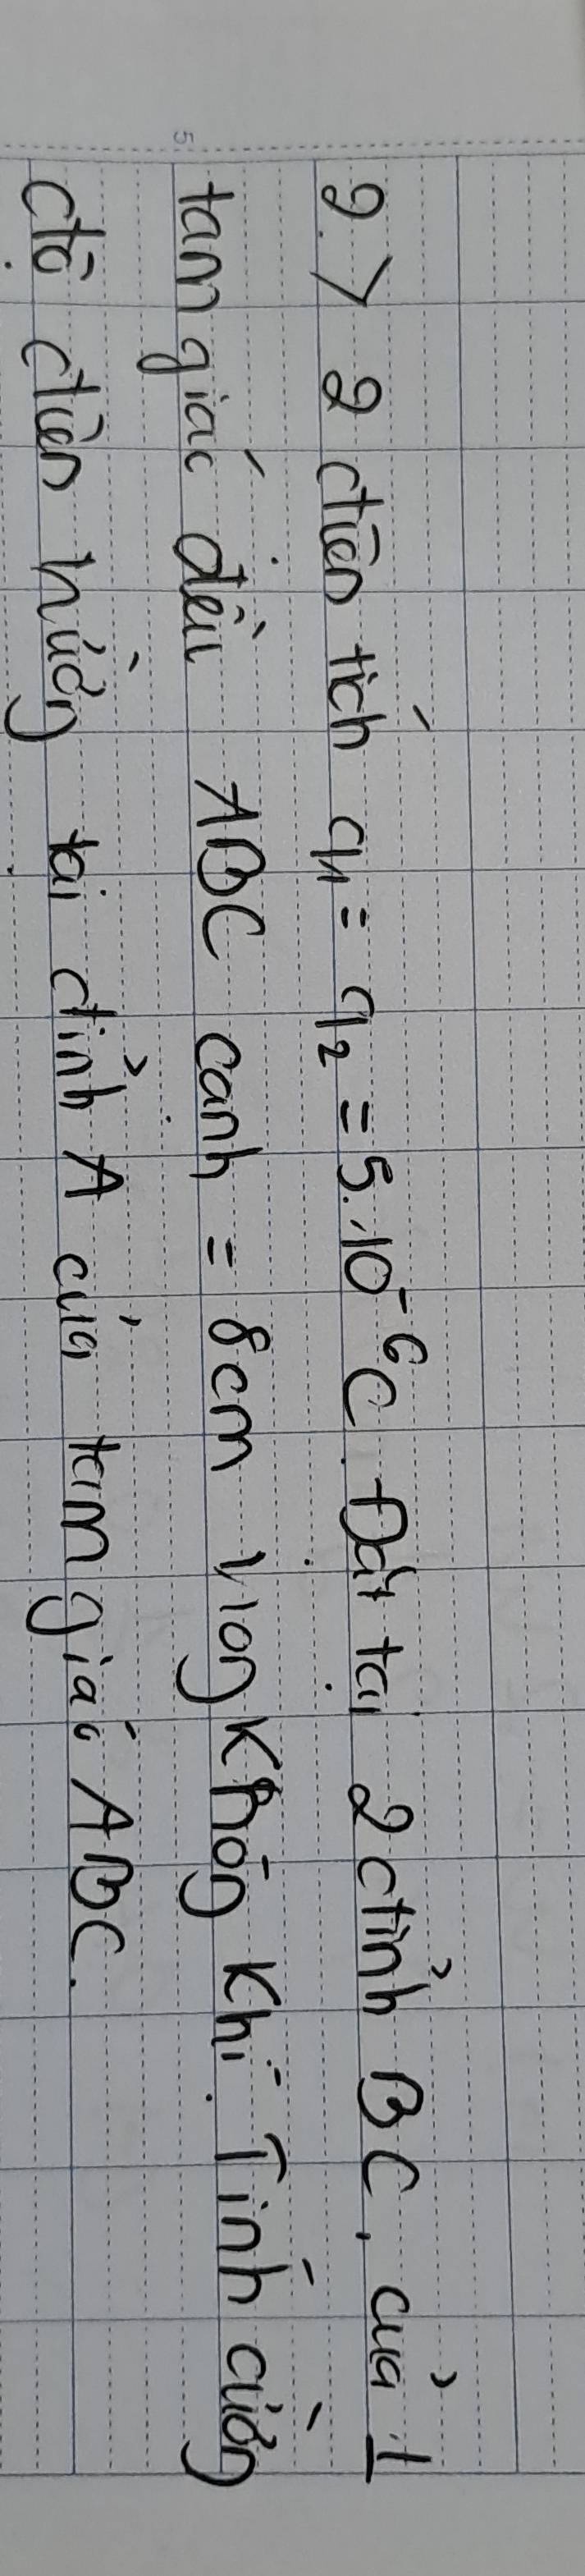 2.> 2 điện tích q1 = q2 = 5.10^-6 C. Đặt tại 2 đỉnh B C, của 1
tam giác đều ABC cạnh = 8cm trong không khí. Tính cường
độ điện trường tại đỉnh A của tam giác ABC.
5